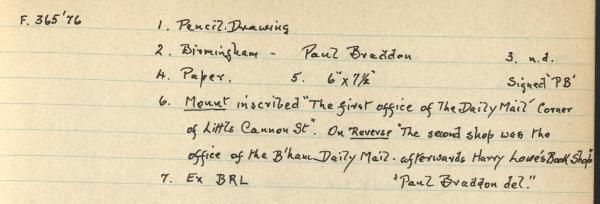 F. 365'76 1. Pencil. Drawing
2. Birmingham - Paul Braddon 3. n.d.
4. Paper. 5. 6" x 7½" Signed 'PB'
6. Mount inscribed "The first office of The Daily Mail' Corner
of Little Cannon St". On Reverse "The second shop was the
office of the B'ham Daily Mail. afterwards Harry Lowe's Book Shop"
7. Ex BRL "Paul Braddon del."